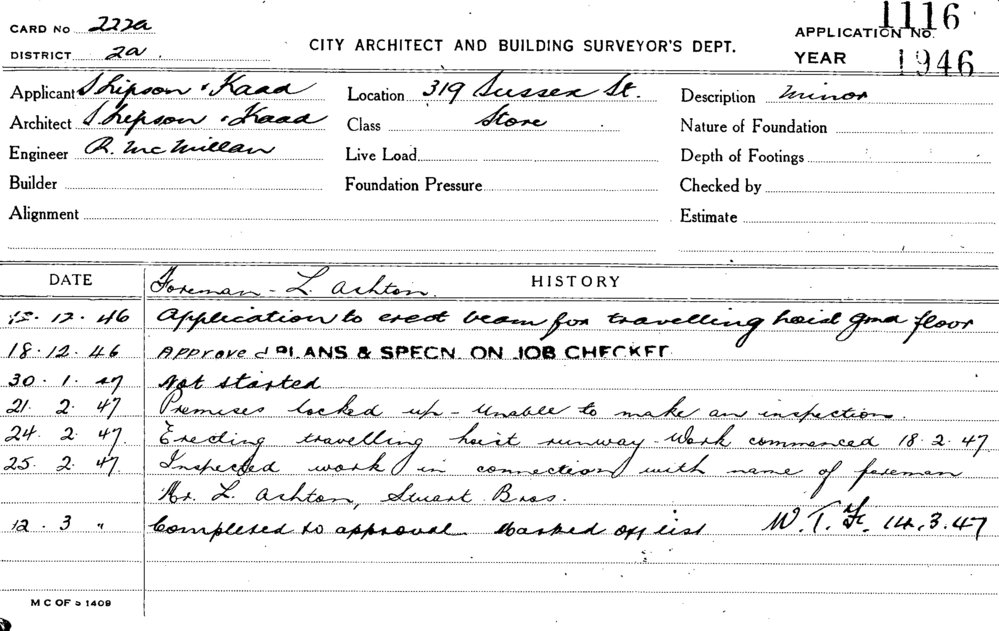 CARD No 222a
DISTRICT 2a
CITY ARCHITECT AND BUILDING SURVEYOR'S DEPT.
APPLICATION No. 1116
YEAR 1946
Applicant Shipson & Kaad
Location 319 Sussex St.
Description Minor
Architect Shipson & Kaad
Class Store
Nature of Foundation
Engineer R. McMillan
Live Load
Depth of Footings
Builder
Foundation Pressure
Checked by
Alignment
Estimate
DATE
HISTORY
Foreman - L. Ashton.
12. 46 Application to erect beam for travelling hoist grnd floor
18. 12. 46 Approved PLANS & SPECN. ON JOB CHECKED
30. 1. 47 Not started
21. 2. 47 Premises locked up - Unable to make an inspection.
24. 2. 47. Erecting travelling hoist runway - Work commenced 18.2.47
25. 2. 47. Inspected work in connection with name of foreman
Mr. L. Ashton, Stuart Bros.
12. 3 " Completed to approval Marked off list W. T. F. 14.3.47
M C OF S 1409